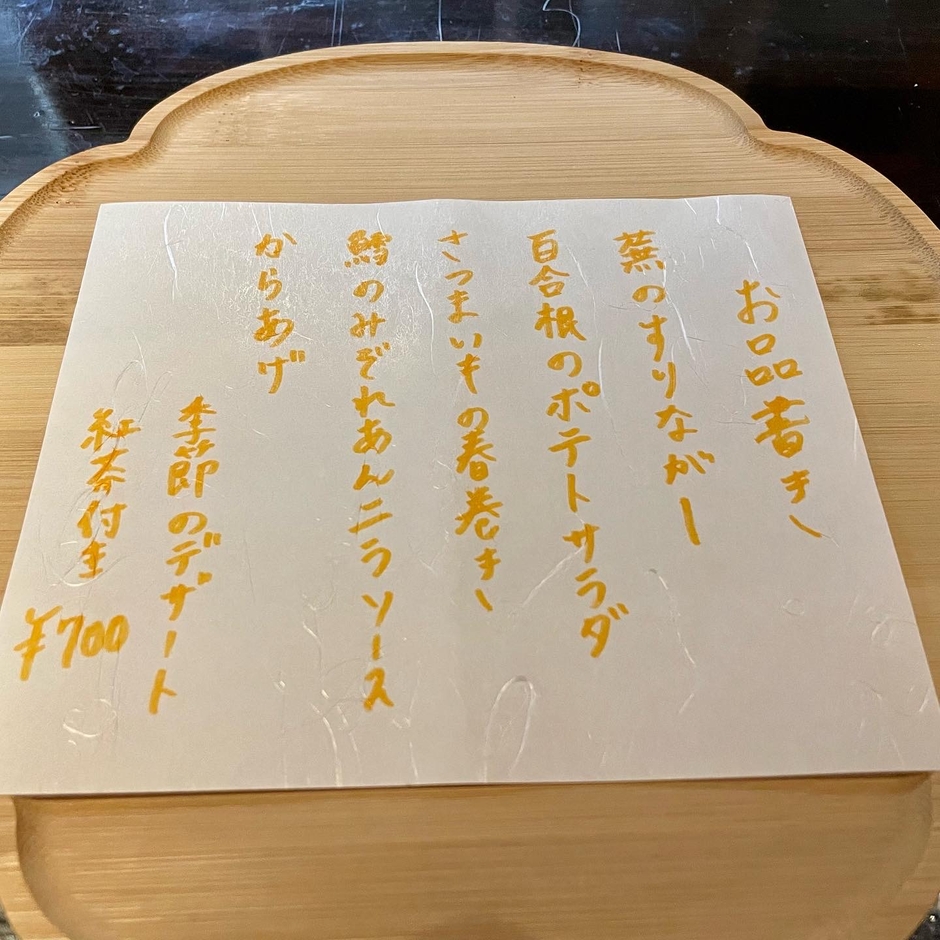 お品書き
蕪のすりながー
百合根のポテトサラダ
さつまいもの春巻き
鱈のみぞれあんニラソース
からあげ
季節のデザート
紅茶付き
¥700